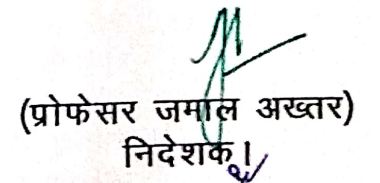 (प्रोफेसर जमाल अख्तर)
निदेशक।